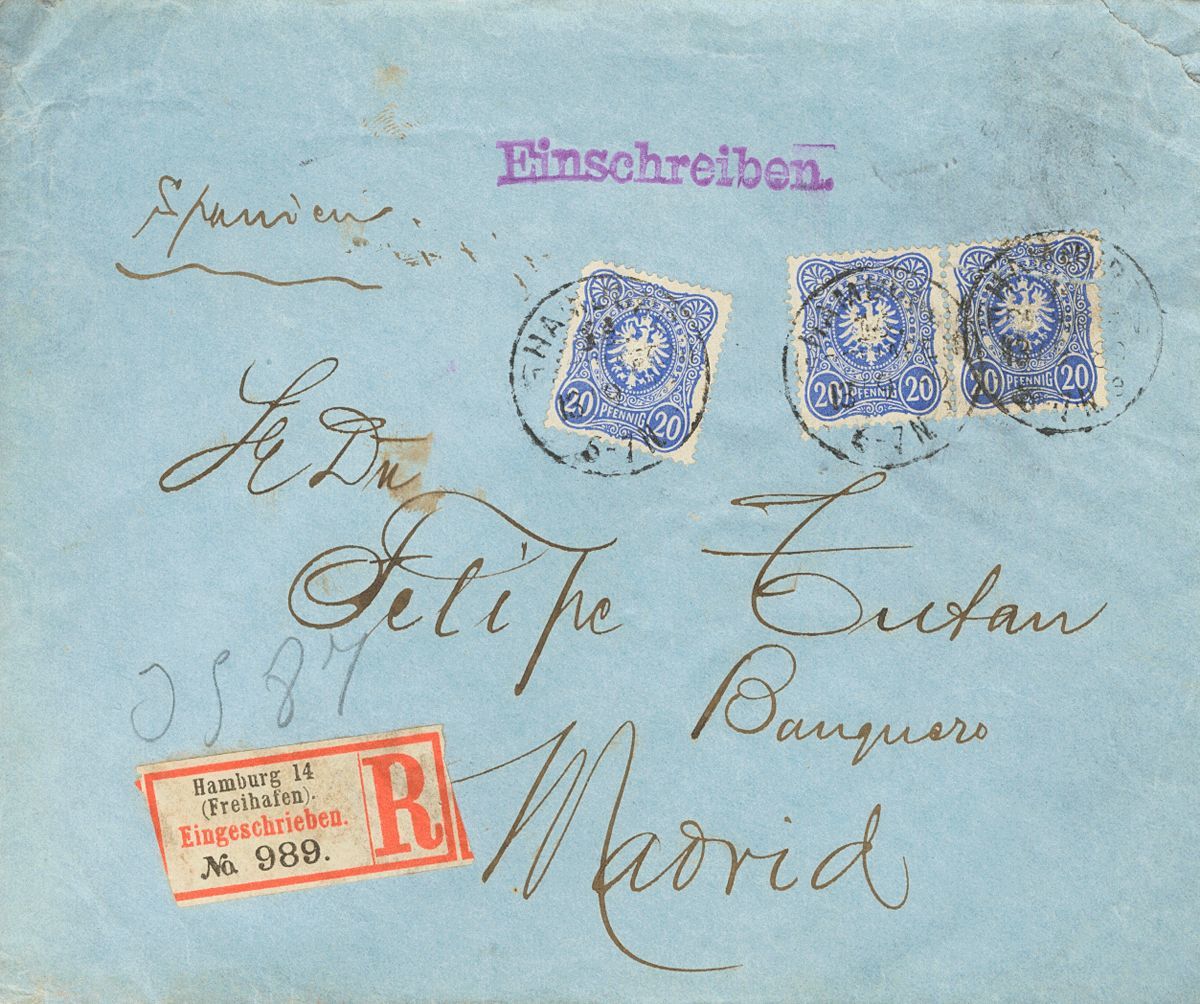 Einschreiben.
Spanien.
20 PFENNIG 20
20 PFENNIG 20
20 PFENNIG 20
6-7N
6-7N
Sr Dn
Felipe
Banquero
Madrid
Hamburg 14
(Freihafen).
Eingeschrieben.
No. 989.
R